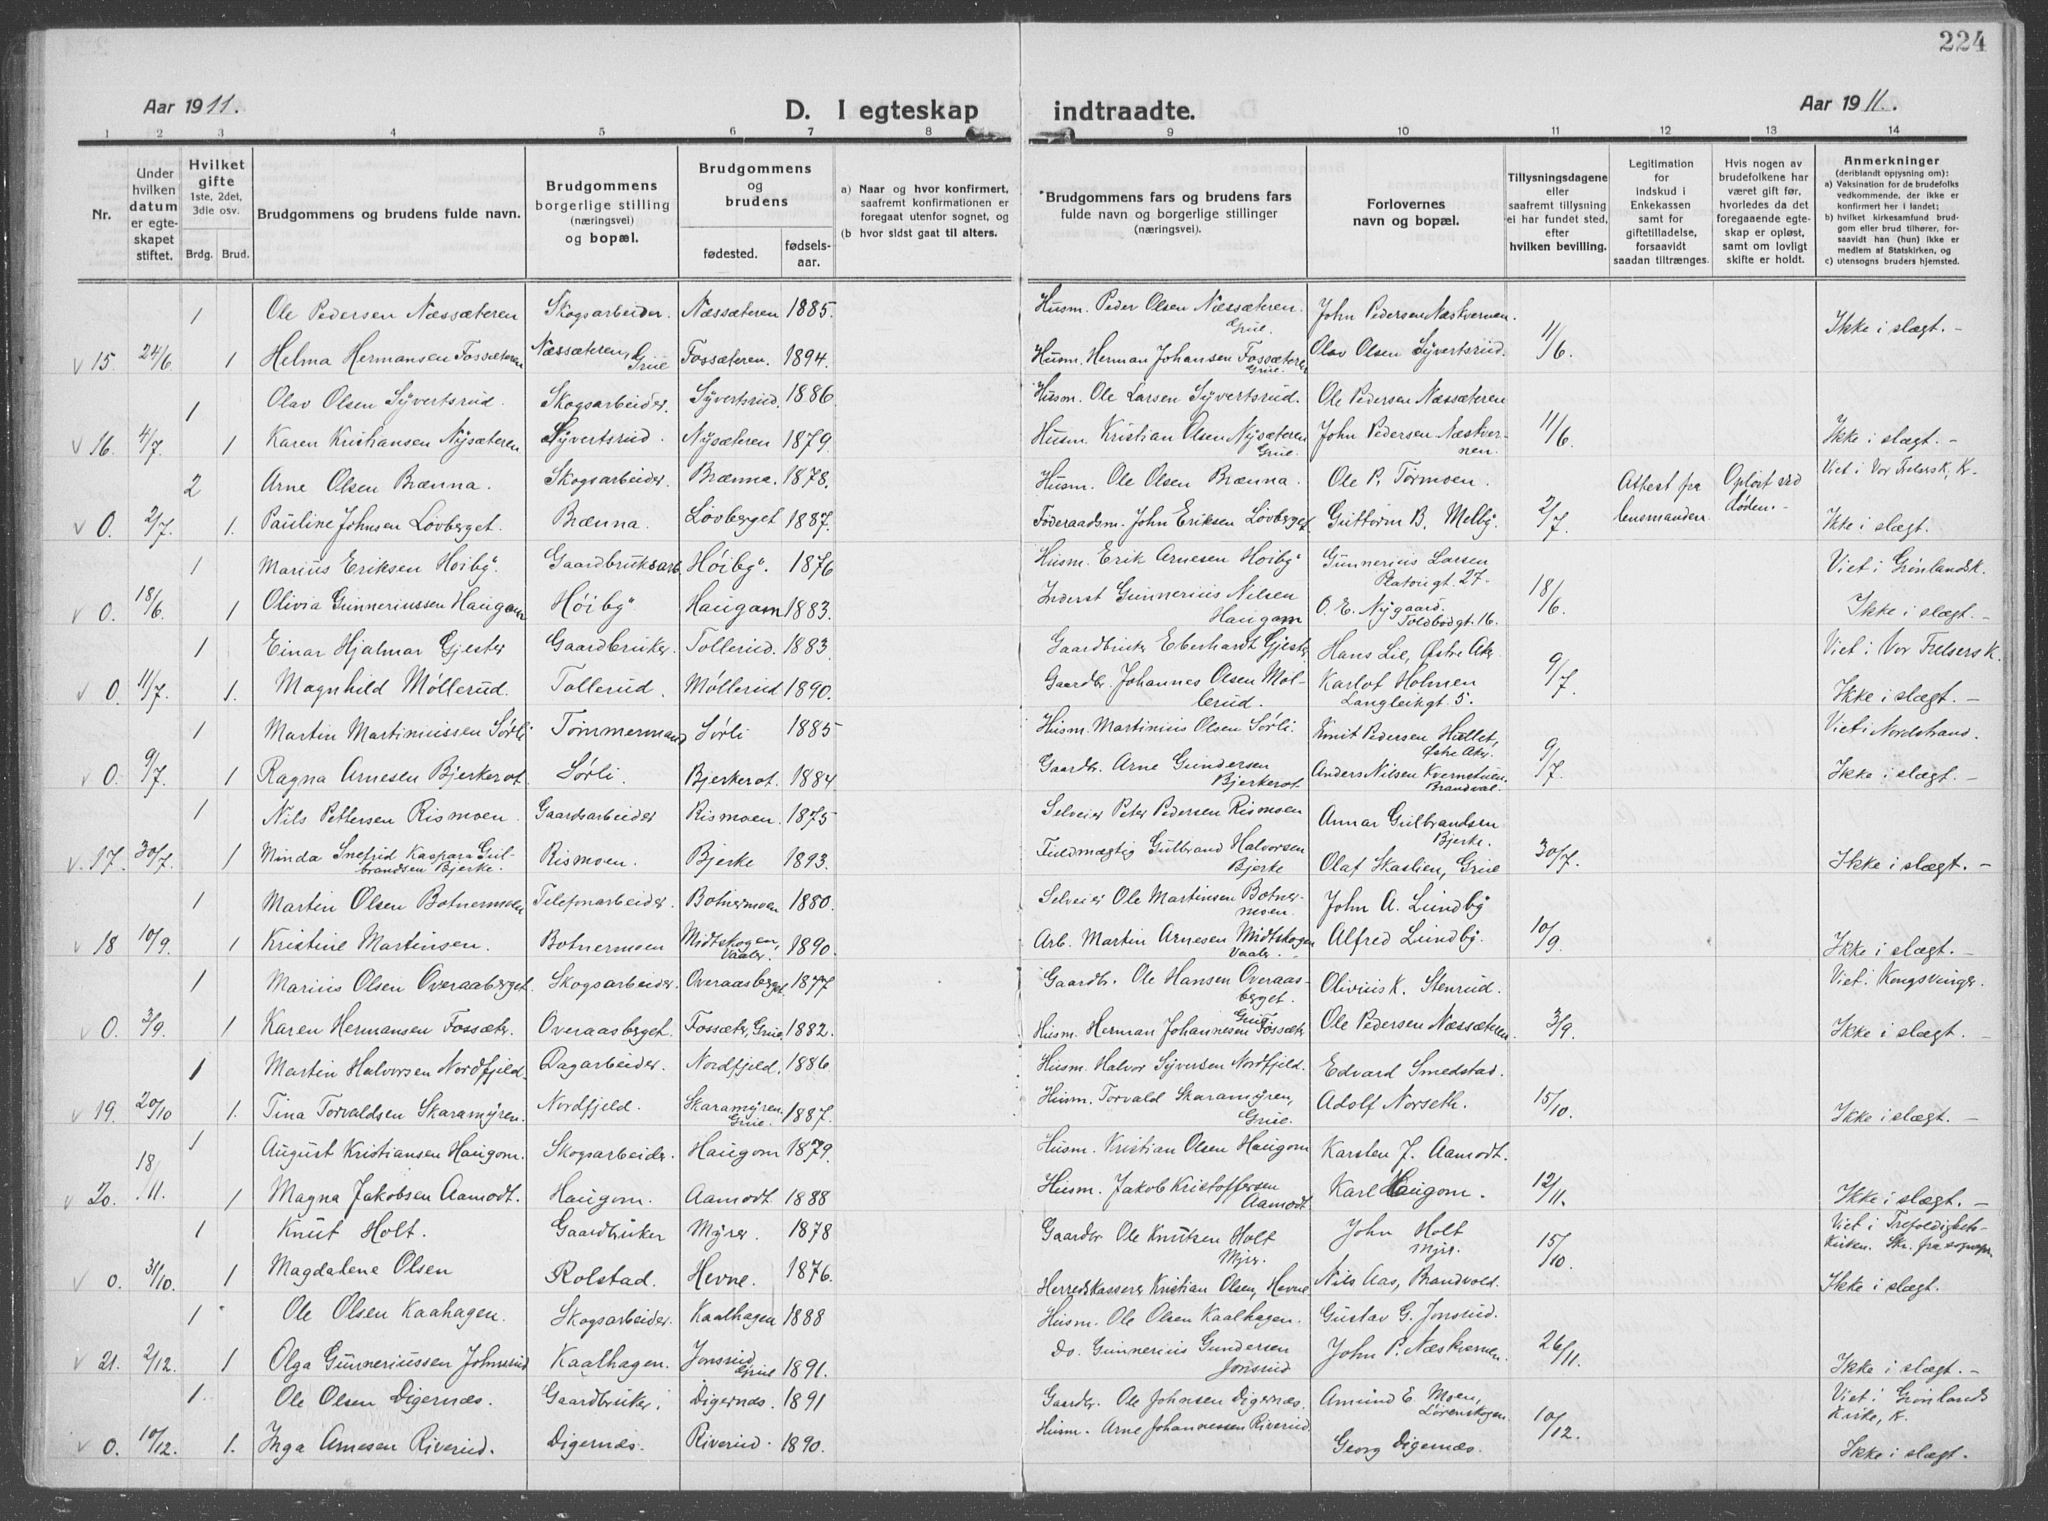 224
Aar 1911.
D. I egteskap indtraadte.
Aar 1911.
1 2 3 4 5 6 7 8 9 10 11 12 13 14
Nr.
Under hvilken datum er egteskapet stiftet.
Hvilket gifte 1ste, 2det, 3die osv.
Brdg. Brud.
Brudgommens og brudens fulde navn.
Brudgommens borgerlige stilling (næringsvei) og bopæl.
Brudgommens og brudens
fødested. fødsels-aar.
a) Naar og hvor konfirmert, saafremt konfirmationen er foregaat utenfor sognet, og
(b hvor sidst gaat til alters.
*Brudgommens fars og brudens fars fulde navn og borgerlige stillinger (næringsvei).
Forlovernes navn og bopæl.
Tillysningsdagene eller saafremt tillysning ei har fundet sted, efter hvilken bevilling.
Legitimation for indskud i Enkekassen samt for giftetilladelse, forsaavidt saadan tiltrænges.
Hvis nogen av brudefolkene har været gift før, hvorledes da det foregaaende egteskap er opløst, samt om lovligt skifte er holdt.
Anmerkninger
(deriblandt oplysning om):
a) Vaksination for de brudefolks vedkommende, der ikke er konfirmert her i landet;
b) hvilket kirkesamfund brudgom eller brud tilhører, forsaavidt han (hun) ikke er medlem af Statskirken, og
c) utensogns bruders hjemsted.
1 Ole Pedersen Næssæteren Skogsarbeider. Næssæteren 1885. Husm. Peder Olsen Næssæteren. Grue. John Pedersen Næskvernen.
v 15. 24/6 1 Helma Hermansen Fossæteren Næssæteren, Grue Fossæteren. 1894. Husm. Herman Johansen Fossæteren Grue. Olav Olsen Syvertsrud. 11/6. Ikke i slægt. -
1 Olav Olsen Syvertsrud. Skogsarbeider. Syvertsrud. 1886 Husm. Ole Larsen Syvertsrud. Ole Pedersen Næssæteren
v 16. 4/7 1 Karen Kristiansen Nysæteren Syvertsrud. Nysæteren 1879. Husm. Kristian Olsen Nysæteren Grue. John Pedersen Næskvernen. 11/6. Ikke i slægt. -
2 Arne Olsen Brænna. Skogsarbeider. Brænna. 1878. Husm. Ole Olsen Brænna. Ole P. Tormoen. Attest fra Opløst ved Viet i Vor Frelsers K, Kr-
v 0. 2/7. 1. Pauline Johnsen Lövberget. Brænna. Lövberget 1887. Föderaadsm. John Eriksen Lövberget. Guttorm B. Melby. 2/7. lensmanden. döden. - Ikke i slægt.
1 Marius Eriksen Hoiby Gaardbruksarb. Höiby. 1876 Husm. Erik Arnesen Hoiby Gunnerius Larsen Platougt. 27. Viet i Grönlandsk.
v 0. 18/6. 1 Olivia Gunneriussen Haugom Höiby Haugom 1883. Inderst Gunnerius Nilsen Haugom O. E. Nygaard. Toldbodgt. 16. 18/6. Ikke i slægt. -
1 Einar Hjalmar Gjester Gaardbruker. Tollerud. 1883. Gaardbruker Eberhardt Gjester Hans Lie, Østre Aker Viet i Vor Frelsers K.
v 0. 11/7. 1. Magnhild Møllerud. Tollerud. Møllerud 1890. Gaardbr. Johannes Olsen Möllerud. Karlot Holmen Langleikgt. 5. 9/7. Ikke i slægt. -
1 Martin Martiniussen Sörli Tömmermand Sörli 1885 Husm. Martinius Olsen Sörli. Knut Pedersen Hullet, Østre Aker. Viet i Nordstrand.
v 0. 9/7. 1 Ragna Arnesen Bjerkerot. Sörli. Bjerkerot. 1884 Gaardbr. Arne Gundersen Bjerkerot. Anders Nilsen Kvernstuen Brandval. 9/7. Ikke i slægt. -
1 Nils Pettersen Rismoen. Gaardsarbeider Rismoen. 1875 Selveier Peter Pedersen Rismoen Annar Gulbrandsen Bjerke.
v. 17. 30/7. 1 Minda Snefrid Kaspara Gulbrandsen Bjerke. Rismoen. Bjerke 1893. Fuldmægtig Gulbrand Halvorsen Bjerke Olaf Skaslien, Grue 30/7. Ikke i slægt. -
1 Martin Olsen Botnermoen Telefonarbeider. Botnermoen 1880. Selveier Ole Martinsen Botnermoen. John A. Lundby
v 18 10/9. 1 Kristine Martinsen. Botnermoen Midtskogen, Vaaler. 1890. Arb. Martin Arnesen Midtskogen Vaaler. Alfred Lundby. 10/9. Ikke i slægt.
1 Marius Olsen Overaaberget. Skogsarbeider. Overaasberget. 1877 Gaardbr. Ole Hansen Overaasberget. Olivius K. Stenrud. Viet i Kongsvinger.
v 0. 3/9. 1 Karen Hermansen Fossæter. Overaasberget. Fossæter, Grue. 1882. Husm. Herman Johannesen Fossæter Grue. Ole Pedersen Næssæteren. 3/9. Ikke i slægt.
1 Martin Halvorsen Nordfjeld. Dagarbeider. Nordfjeld. 1886 Husm. Halvor Syversen Nordfjeld. Edvard Smedstad.
v 19. 20/10 1. Tina Torvaldsen Skaramyren. Nordfjeld. Skaramyren. Grue. 1887. Husm. Torvald Skaramyren, Grue. Adolf Norseth. 15/10. Ikke i slægt. -
1 August Kristiansen Haugom. Skogsarbeider. Haugom 1879. Husm. Kristian Olsen Haugom Karsten J. Aamodt.
v 20. 18/11. 1 Magna Jakobsen Aamodt. Haugom. Aamodt. 1888 Husm. Jakob Kristoffersen Aamodt. Karl Haugom. 12/11. Ikke i slægt. -
1 Knut Holt. Gaardbruker Myrer. 1878 Gaardbr. Ole Knutsen Holt Myrer. John Holt Myrer. Viet i Trefoldighets-Kirken. Skr. fra sognepr.
v 0. 31/10. 1 Magdalene Olsen Rolstad. Hevne. 1876. Herredskasserer Kristian Olsen, Hevne Nils Aas, Brandvold. 15/10. Ikke i slægt.
1 Ole Olsen Kaahagen. Skogsarbeider. Kaalhagen 1888 Husm. Ole Olsen Kaalhagen. Gustav G. Jonsrud.
v 21. 2/12. 1 Olga Gunneriussen Johnsrud Kaalhagen. Jonsrud Grue 1891. Do. Gunnerius Gundersen Jonsrud John P. Næskvernen. 26/11. Ikke i slægt. -
1. Ole Olsen Digernæs. Gaardbruker. Digernæs. 1891 Gaardbr. Ole Johnsen Digernæs. Amund E. Moen, Lörenskogen. Viet i Grönlands Kirke, K.
v 0. 10/12. 1. Inga Arnesen Riverud. Digernæs. Riverud. 1890. Husm. Arne Johannessen Riverud. Georg Digernæs. 10/12. Ikke i slægt.